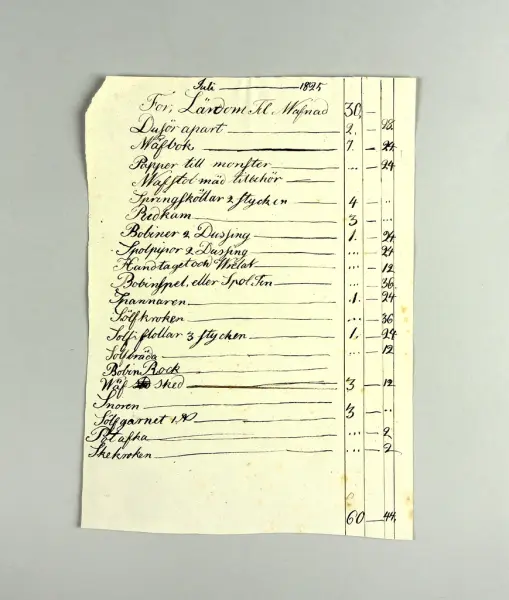 Juli — 1825
För, Lärdom Til Wäfnad 30 —
Duför apart 2. — 28.
Wäfbok — 7. — 24
Papper till monster — ... — 24
Wäfstol mäd tillehör —
Springsköttar 2 stycken 4 — ..
Redkam — 3 — ...
Bobiner 2 Dussing — 1. — 24
Spolpipor 2 Dussing — ... — 24
Handtaget och Wefat — ... — 12
Bobinspel, eller Spol Ten — ... — 36
Spannaren — .1. — 24
Sölfkroken — ... — 36
Solf: stottar 3 stycken — 1. — 24
Solfbräda — ... — 12
Bobin Rock —
Wäf sked — 3 — 12
Snoren —
Solfgarnet 1 № — 3 — ..
— ... — 2
Skekroken — ... — 2
60 — 44.